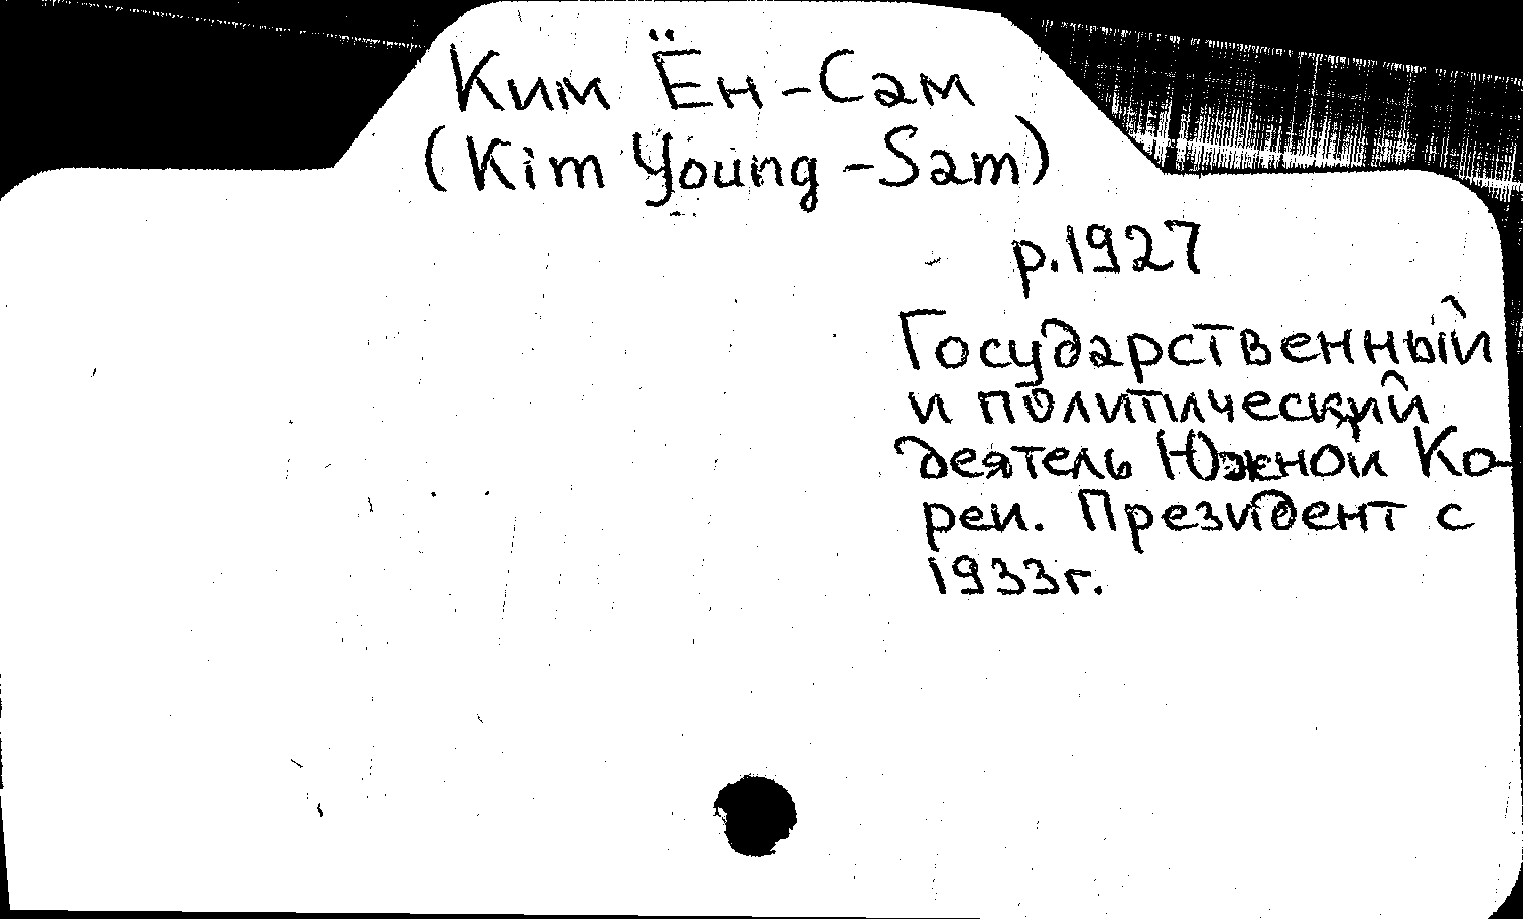 Ким Ён-Сам
(Kim Young-Sam)
р.1927
Государственный
и политический
деятель Южной Ко-
реи. Президент с
1933г.